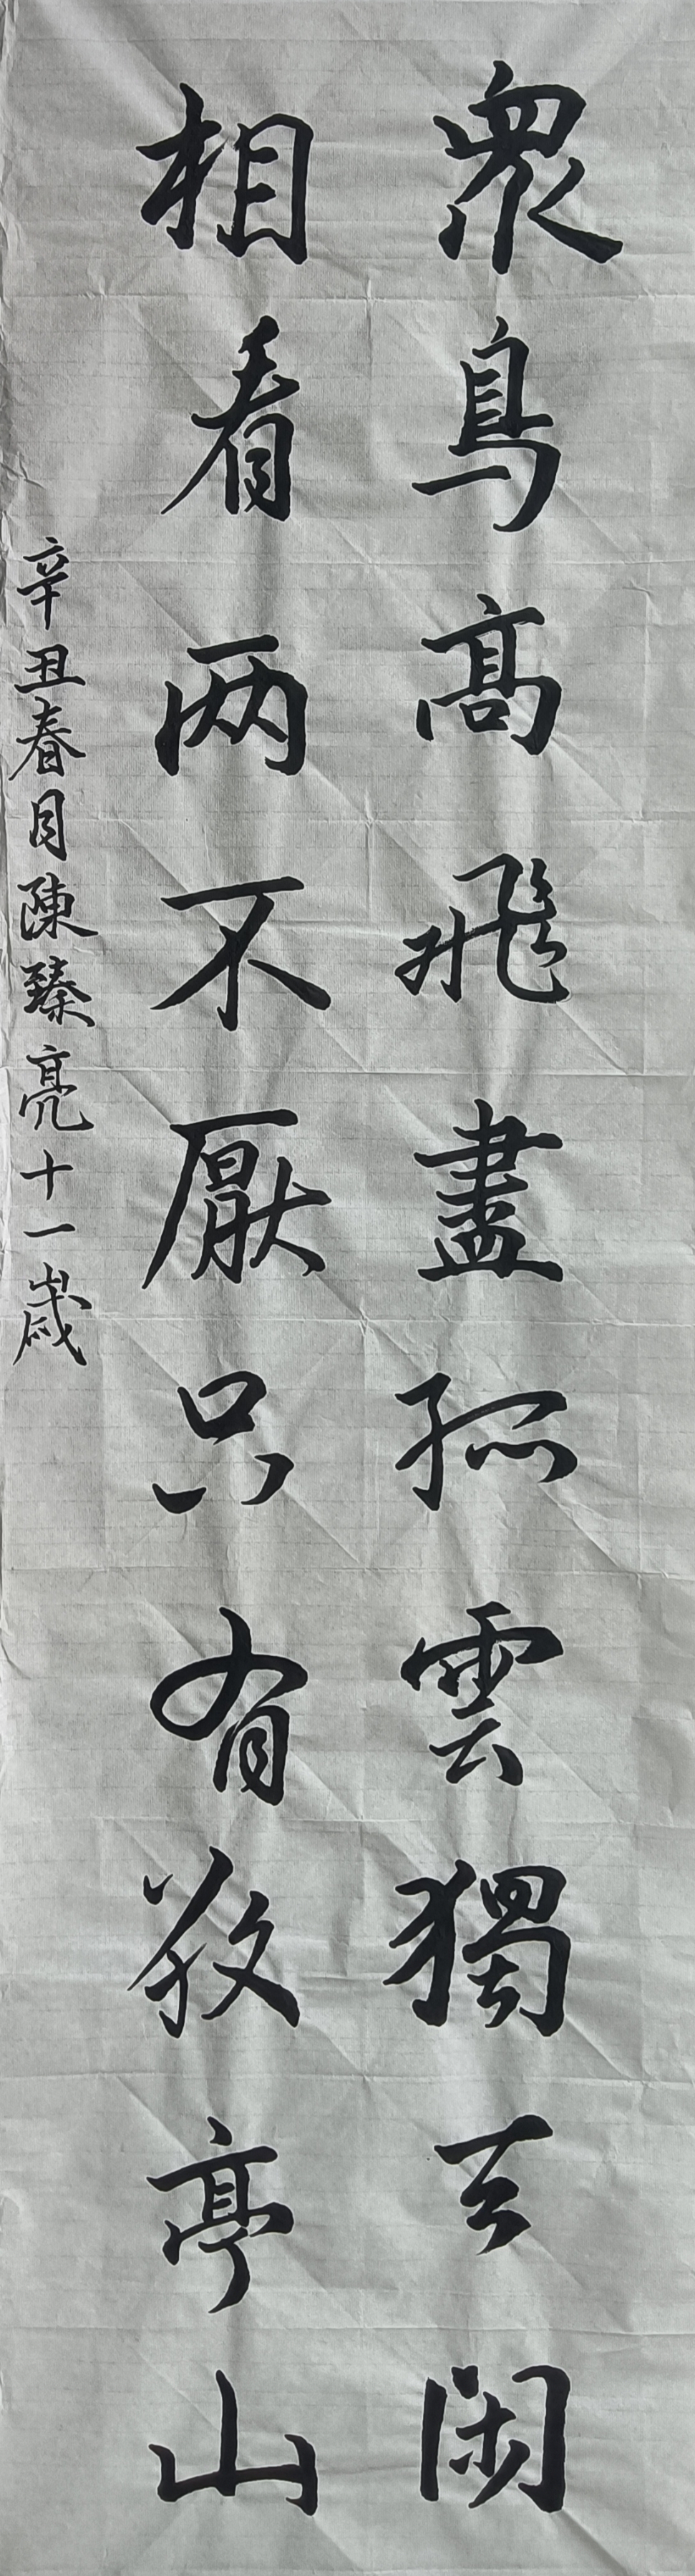 眾鳥高飛盡孤雲獨去閑
相看两不厭只有敬亭山
辛丑春月陳臻亮十一歲